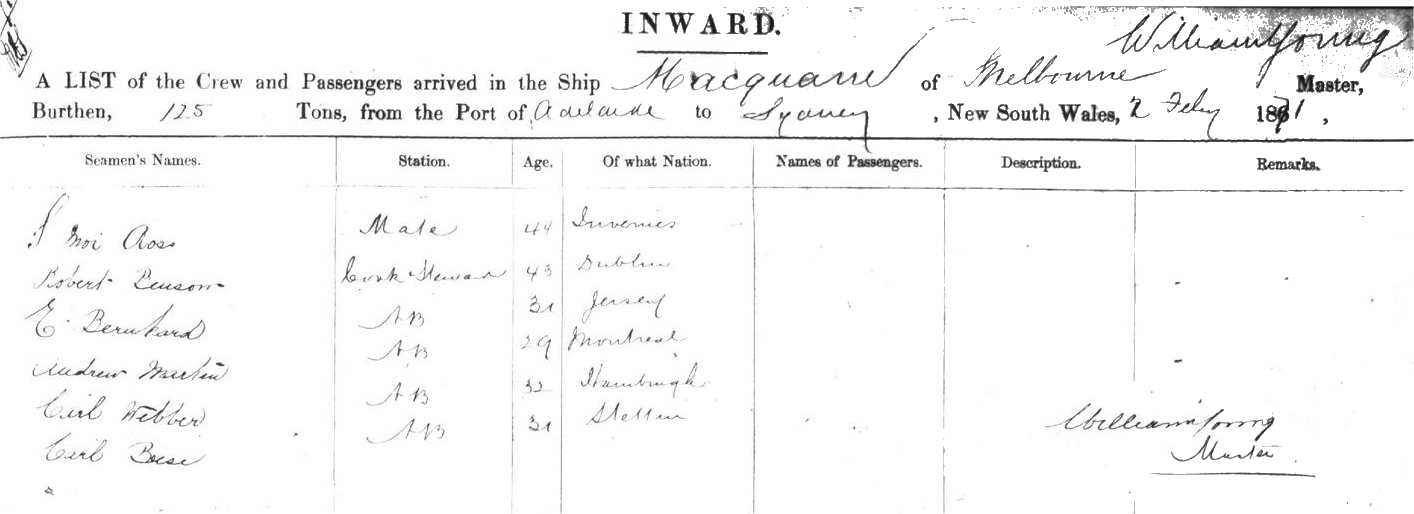 INWARD.
William Young
A LIST of the Crew and Passengers arrived in the Ship Macquarie of Melbourne Master,
Burthen, 125 Tons, from the Port of Adelaide to Sydney, New South Wales, 2 Feby 1871,
Seamen's Names. Station. Age. Of what Nation. Names of Passengers. Description. Remarks.
Ross Mate 44 Inverness
Robert Benson Cook & Steward 43 Dublin
E. Bernhard AB 31 Jersey
Andrew Martin AB 29 Montreal
Carl Webber AB 32 Hamburgh
Carl Boese AB 31 Stettin
William Young
Master